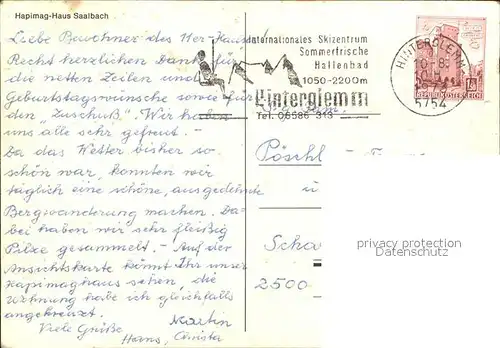 Hapimag-Haus Saalbach
Liebe Bewohner des 11er-Hauses
Recht herzlichen Dank für
die netten Zeilen und
Geburtstagswünsche sowie für
den „Zuschuß". Wir haben
uns alle sehr gefreut. -
Da das Wetter bisher so
schön war, konnten wir
täglich eine schöne, ausgedehnte
Bergwanderung machen. Da-
bei haben wir sehr fleißig
Pilze gesammelt. - Auf der
Ansichtskarte könnt Ihr unser
Hapimaghaus sehen, die
Wohnung habe ich gleichfalls
angekreuzt.
Viele Grüße Martin
Hans, Christa
Internationales Skizentrum
Sommerfrische
Hallenbad
1050-2200m
Hinterglemm
Tel. 06586 313
HINTERGLEMM
5754
REPUBLIK ÖSTERREICH
Pöschl
u
Scha
2500
privacy protection
Datenschutz